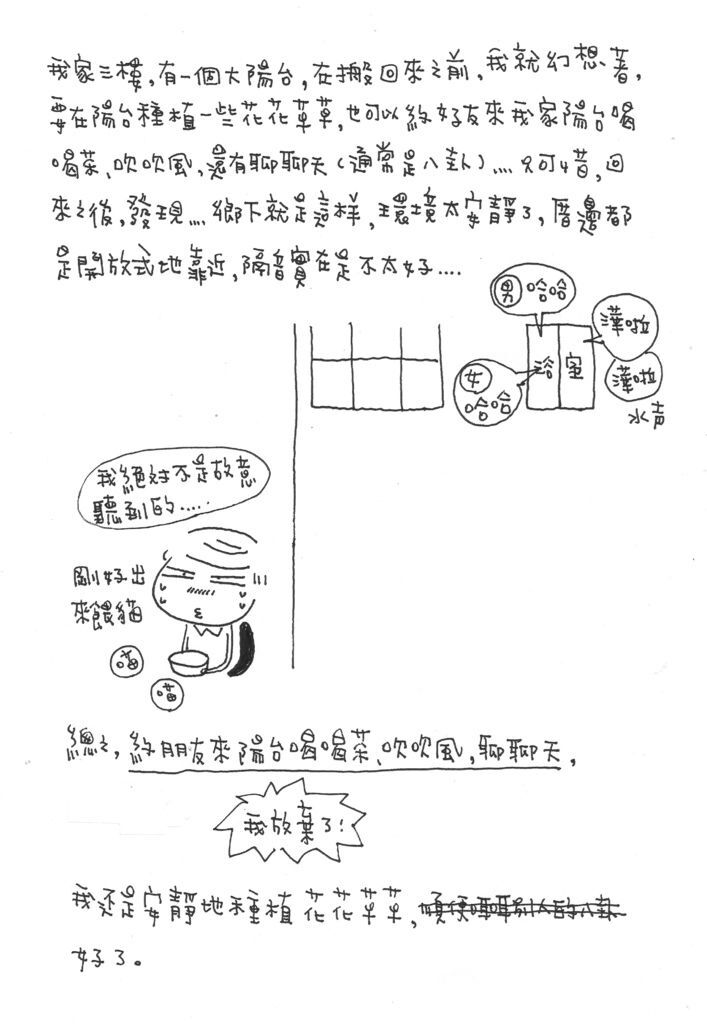 我家三樓,有一個大陽台,在搬回來之前,我就幻想著,
要在陽台種植一些花花草草,也可以約好友來我家陽台喝
喝茶、吹吹風,還有聊聊天(通常是八卦)....只可惜,回
來之後,發現....鄉下就是這樣,環境太安靜了,厝邊都
是開放式地靠近,隔音實在是不太好....
男 哈哈
女
哈哈
浴室
譁啦
譁啦
水声
我絕对不是故意
聽到的.....
剛好出
來餵貓
喵
喵
總之,約朋友來陽台喝喝茶、吹吹風,聊聊天,
我放棄了!
我还是安靜地種植花花草草,順便聽聽別人的八卦
好了。